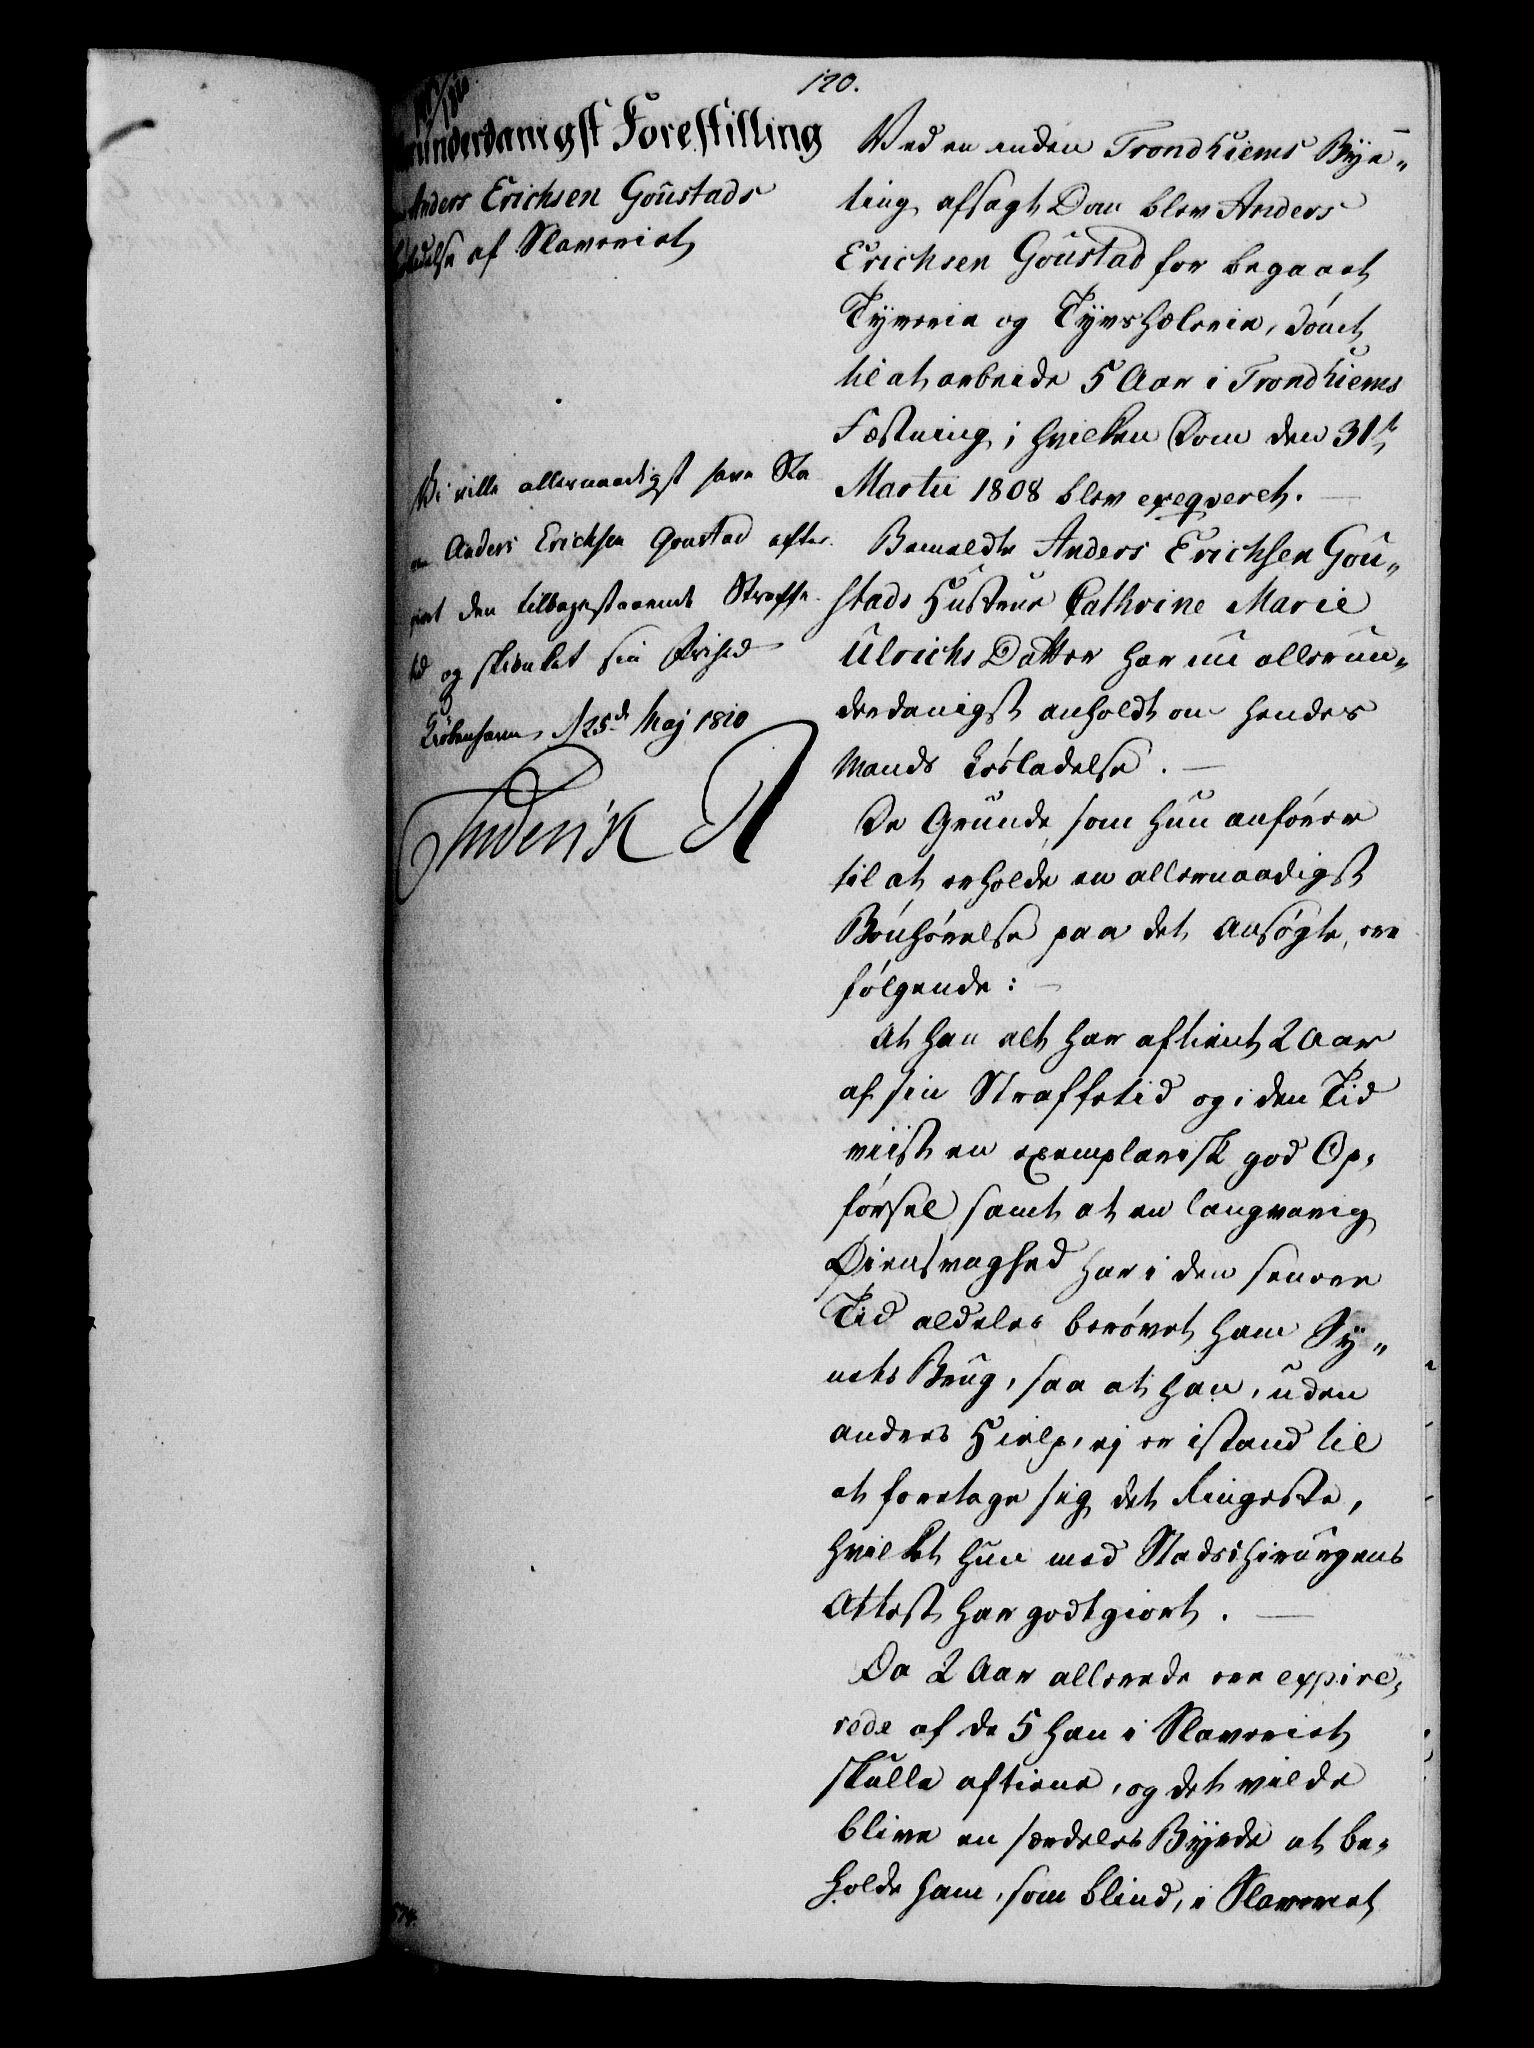 120.
underdanigst Forestilling
Anders Erichsen Goustads
af Slaveriet
Vi ville allernaadigst have Sla
Anders Erichsen Goustad efter
den tilbagestaaende Straffe
tid og skienket sin Frihed
Kiøbenhavn d 25de Maj 1810
Frederik R
Ved en inden Trondhiems Bye-
ting afsagt Dom blev Anders
Erichsen Goustad for begaaet
Tyverie og Tyvshælerie, dømt
til at arbeide 5 Aar i Trondhiems
Fæstning; hvilken Dom den 31te
Martii 1808 blev exeqveret.
Bemeldte Anders Erichsen Gou-
stads Hustrue Cathrine Marie
Ulrichs Datter har nu allerun-
derdanigst anholdt om hendes
Mands Løsladelse.
De Grunde, som hun anfører
til at erholde en allernaadigst
Bønhørelse paa det Ansøgte, ere
følgende:
At han alt har aftient 2 Aar
af sin Straffetid og i den Tid
viist en exemplarisk god Op-
førsel samt at en langvarig
Øiensvaghed har i den senere
Tid aldeles berøvet ham Sy-
nets Brug, saa at han, uden
andres Hielp, ej er istand til
at foretage sig det Ringeste,
hvilket hun med Stadschirurgens
Attest har godtgiort.
Da 2 Aar allerede ere expire-
rede af de 5 han i Slaveriet
skulle aftiene, og det vilde
blive en særdeles Byrde at be-
holde ham, som blind, i Slaveriet